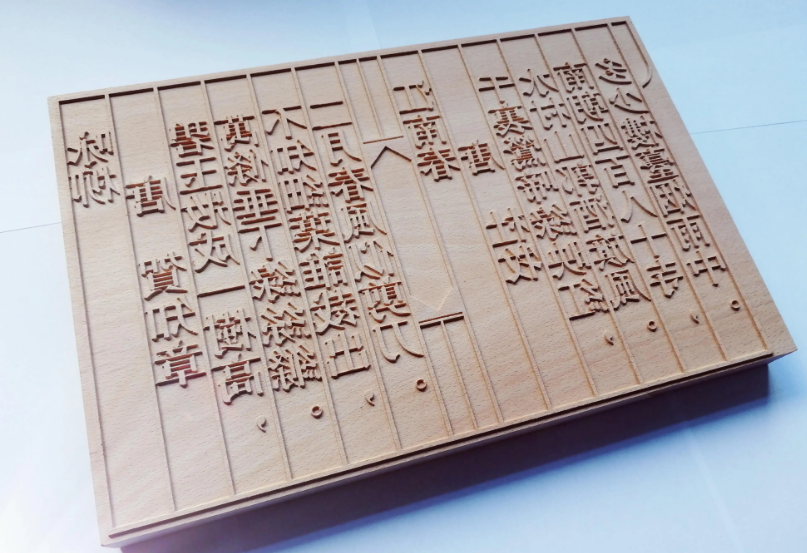 咏柳
唐 賀知章
碧玉妝成一樹高，
萬條垂下綠絲縧。
不知細葉誰裁出，
二月春風似剪刀。
江南春
唐 杜牧
千裏鶯啼綠映紅，
水村山郭酒旗風。
南朝四百八十寺，
多少樓臺煙雨中。